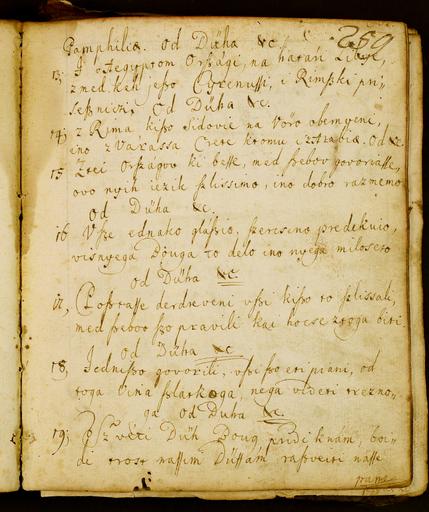 259
Pamphilie. Od Düha &c.
13; I Aegyptom Orsági, na haraň Libye,
zmed keh jesso Cyrenussi, i Rimski pri„
sesnici; Od Duha &c.
14; z Rima kisso Sidovie na Vöro obernyeni,
ino z Vaxassa Crete kromu iz Arabie. Od &c
15 Ztei orszagov ki besse, med szebov govorjasse,
ovo nyih iezik szlissimo, ino dobro razmemo
od Düha &c.
16 Vsze ednako glaszio, szercsno predekuio,
visnyega Bouga to delo ino nyega miloscso
od Düha &c
17, Postasse derdreveni vszi kiszo to szlissali,
med szeboo szo pravili kai hocse ztoga biti
od Düha &c
18, Iednisso govorili, vszi szo eti piani, od
toga Vina szlatkoga, nega videti trezno„
ga od Duha &c.
19; O szveti Düh Boug pridi knám, bou„
di trost nassim Düssam rasztveiti nasse
pame